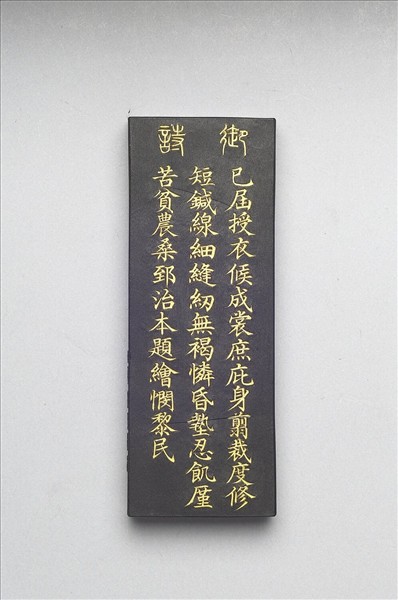 御詩
已届授衣候成裳庶庇身翦裁度修
短鍼線細縫紉無褐憐昏墊忍飢廑
苦貧農桑郅治本題繪憫黎民